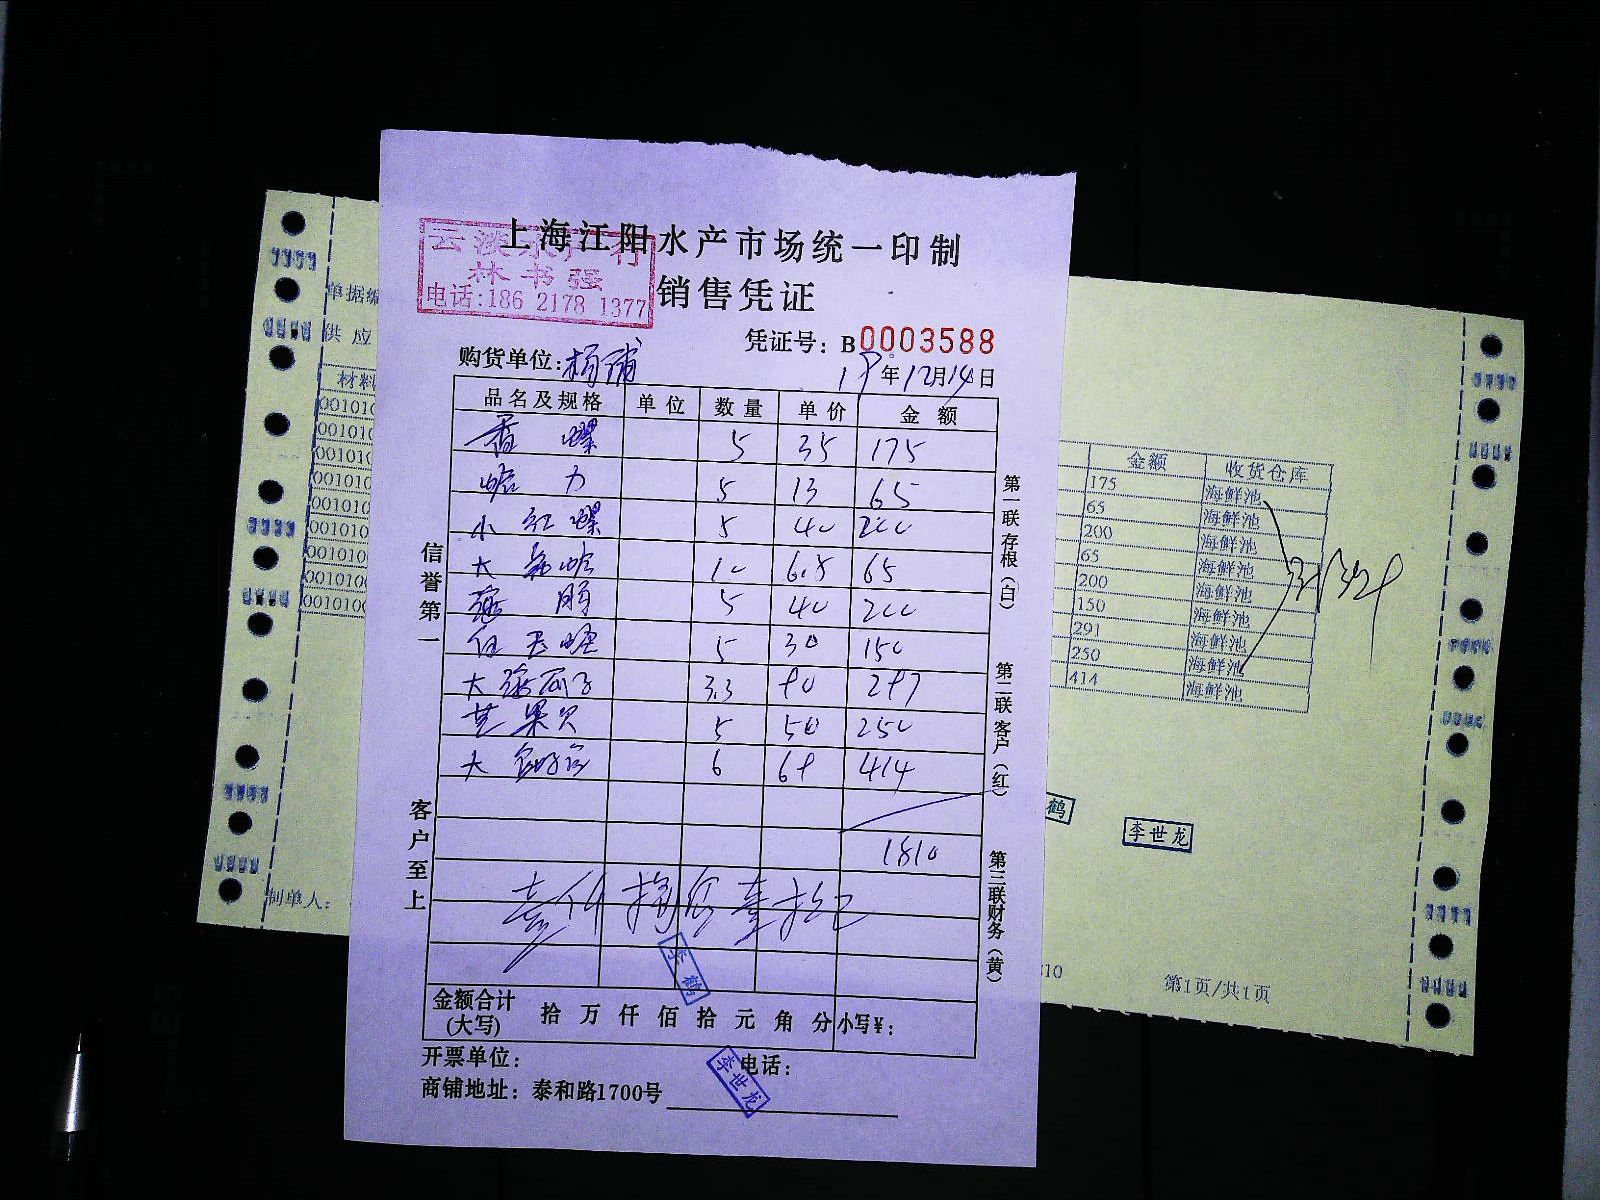 上海江阳水产市场统一印制
林书强
电话:186 2178 1377
销售凭证
凭证号: B0003588
购货单位:杨浦
年12月14日
品名及规格 单位 数量 单价 金额
香螺 5 35 175
5 13 65
小红螺 5 40 200
大 10 6.5 65
5 40 200
5 30 150
大 3.3 90 297
苹果贝 5 50 250
大 6 69 414
1810
李鹤
金额合计
(大写)
拾 万 仟 佰 拾 元 角 分 小写¥:
开票单位:
电话:
李世龙
商铺地址: 泰和路1700号
信誉第一
客户至上
第一联存根(白)
第二联客户(红)
第三联财务(黄)
单据编
供应
材料
001010
001010
001010
001010
001010
001010
001010
001010
001010
制单人:
金额 收货仓库
175 海鲜池
65 海鲜池
200 海鲜池
65 海鲜池
200 海鲜池
150 海鲜池
291 海鲜池
250 海鲜池
414 海鲜池
鹤
李世龙
10
第1页/共1页